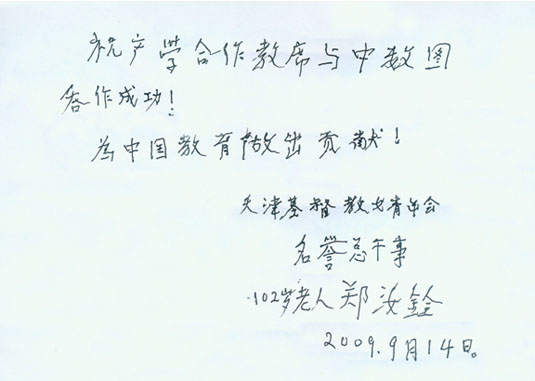 祝产学合作教席与中数图
合作成功!
为中国教育做出贡献!
天津基督教女青年会
名誉总干事
102岁老人郑汝銓
2009.9月14日。